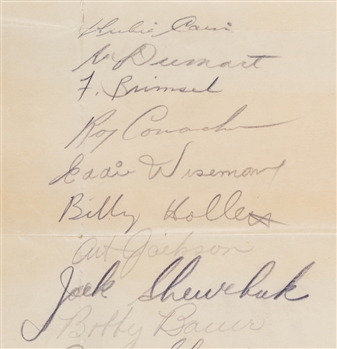 Herbie Cain
W. Dumart
F. Brimsek
Roy Conacher
Eddie Wiseman
Billy Hollett
Art Jackson
Jack Shewchuk
Bobby Bauer